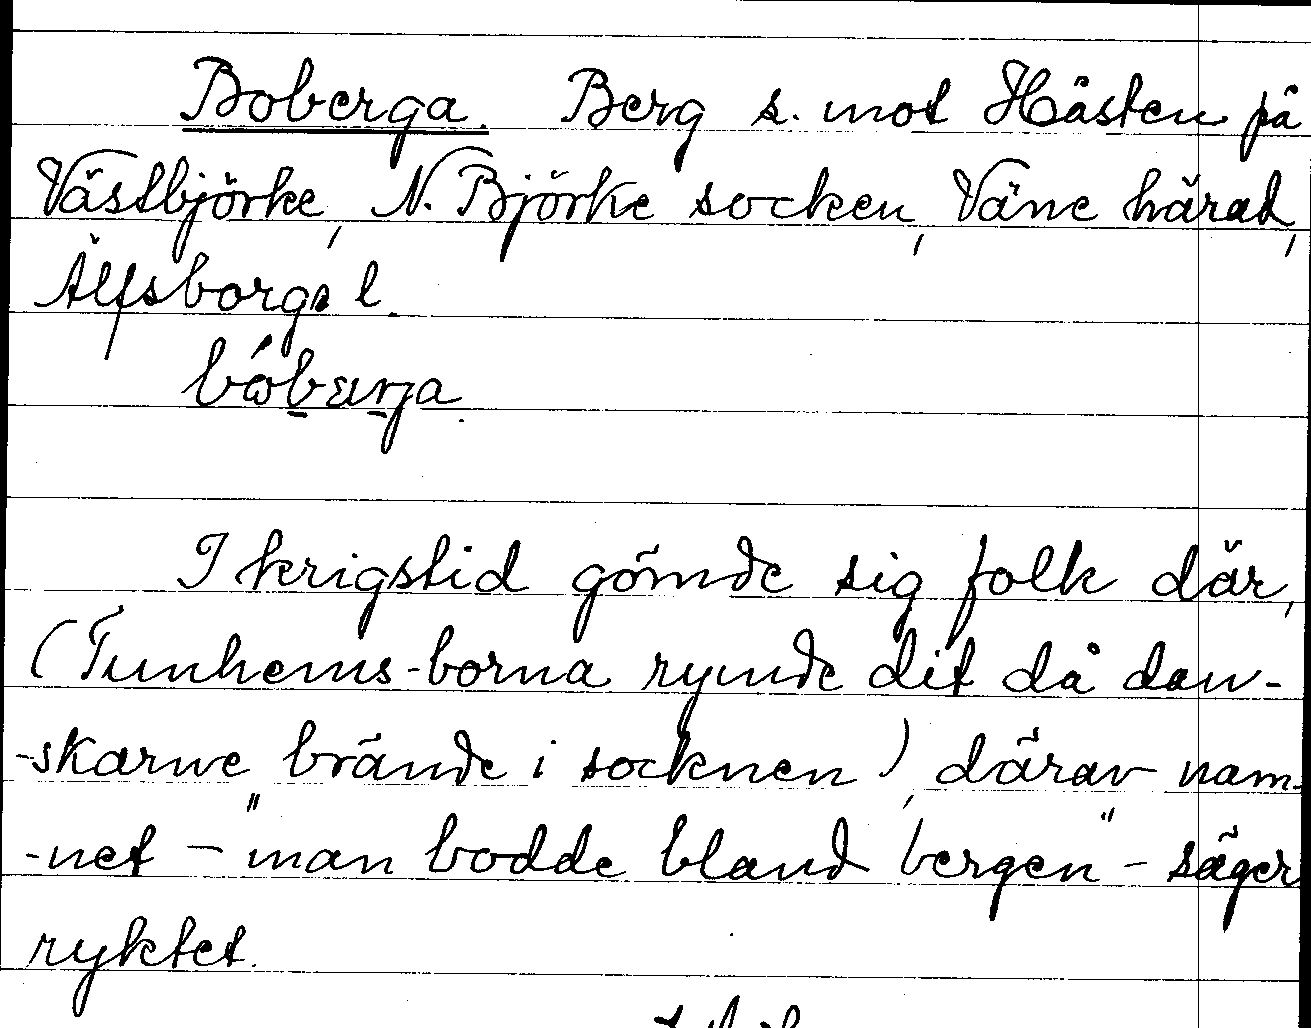 Boberga. Berg s. mot Hästen på
Västbjörke, N. Björke socken, Väne härad,
Älfsborgs l.
I krigstid gömde sig folk där,
(Tunhems-borna rymde dit då dan-
-skarne brände i socknen), därav nam-
-net – "man bodde bland bergen" – säger
ryktet.